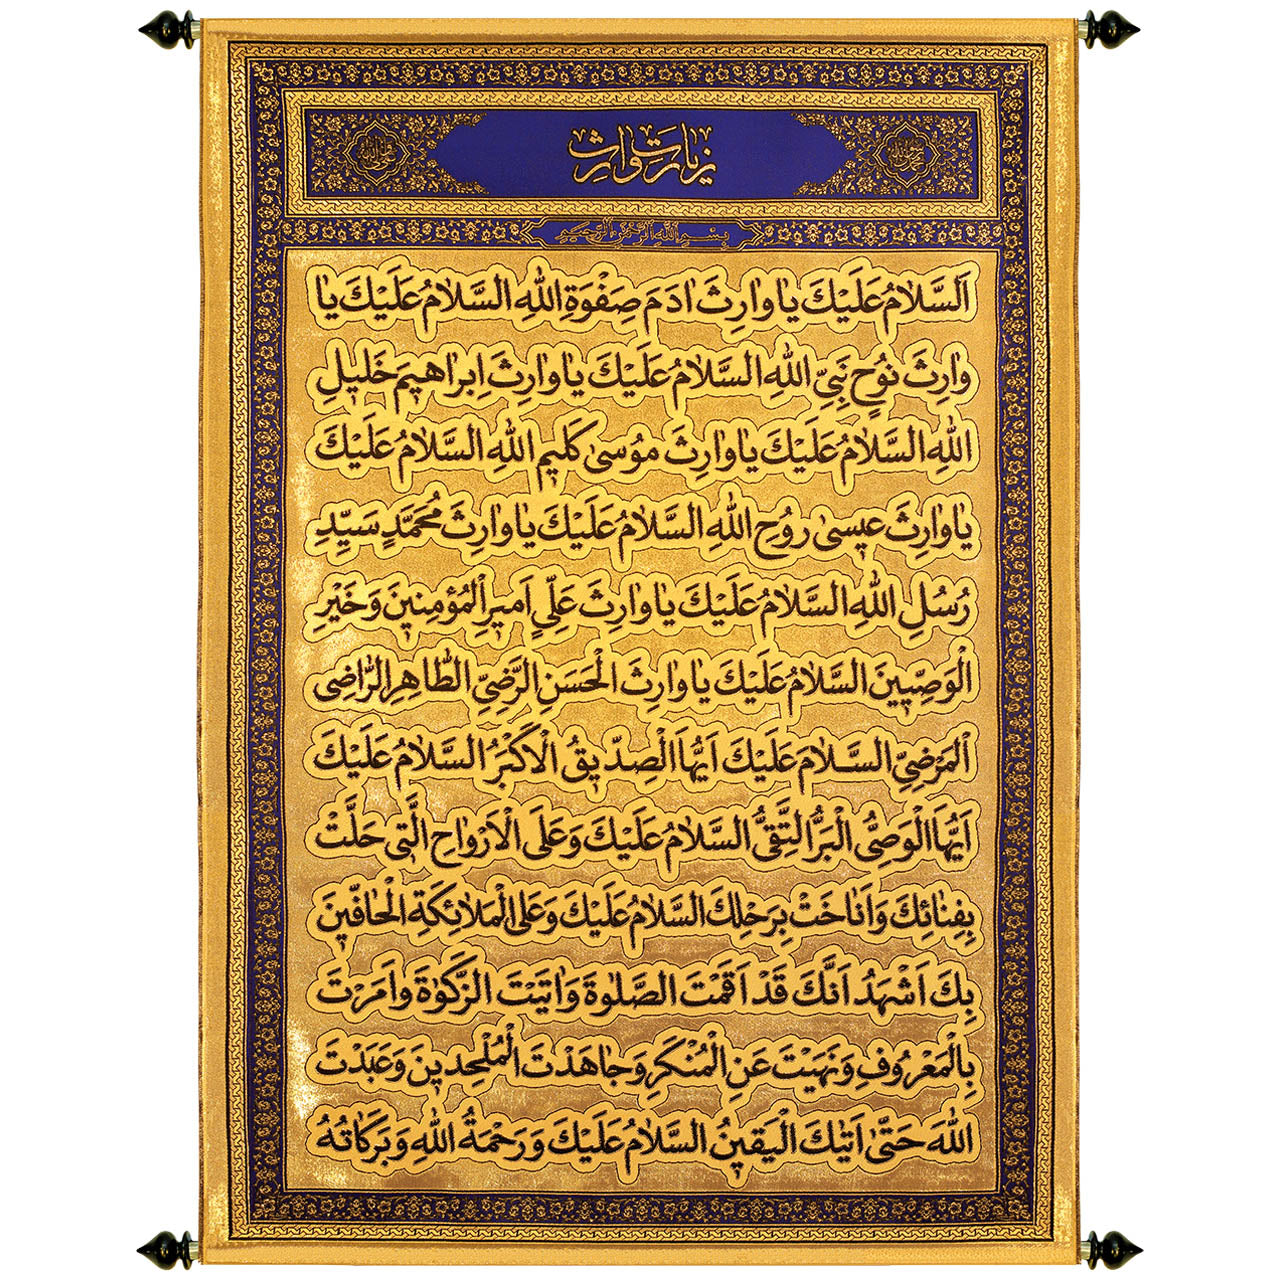 زیارت وارث
بسم الله الرحمن الرحیم
اَلسَّلامُ عَلَیْكَ یا وارِثَ ادَمَ صِفْوَةِ اللهِ السَّلامُ عَلَیْكَ یا
وارِثَ نُوحٍ نَبِیِّ اللهِ السَّلامُ عَلَیْكَ یا وارِثَ اِبراهیمَ خَلیلِ
اللهِ السَّلامُ عَلَیْكَ یا وارِثَ مُوسیٰ کَلیمِ اللهِ السَّلامُ عَلَیْكَ
یا وارِثَ عیسیٰ رُوحِ اللهِ السَّلامُ عَلَیْكَ یا وارِثَ مُحَمَّدٍ سَیِّدِ
رُسُلِ اللهِ السَّلامُ عَلَیْكَ یا وارِثَ عَلِیٍّ اَمیرِ الْمُؤمِنینَ وَ خَیْرِ
الْوَصِیینَ السَّلامُ عَلَیْكَ یا وارِثَ الْحَسَنِ الرَّضِیِّ الطّاهِرِ الرّاضی
الْمَرْضِیِّ السَّلامَ عَلَیْكَ اَیُّهَا الصِدّیقُ الْاَکْبَرُ السَّلامُ عَلَیْكَ
اَیُّهَا الْوَصِیُّ الْبَرُّ التَّقیُّ السَّلامُ عَلَیْكَ وَ عَلَی الْاَرْواحِ الَّتی حَلَّتْ
بِفِنائِكَ وَ اَناخَتْ بِرَحلِكَ السَّلامُ عَلَیْكَ وَ عَلَی الْمَلائِکَةِ الْحافّینَ
بِكَ اَشْهَدُ اَنَّكَ قَدْ اَقَمْتَ الصَّلوٰةَ وَ اتَیْتَ الزَّکوٰةَ وَ اَمَرْتَ
بِالْمَعْرُوفِ وَ نَهَیْتَ عَنِ الْمُنْکَرِ وَ جاهَدْتَ الْمُلْحِدینَ وَ عَبَدْتَ
اللهَ حَتّیٰ اَتیٰكَ الْیَقینُ السَّلامُ عَلَیْكَ وَ رَحْمَةُ اللهِ وَ بَرَکاتُهُ